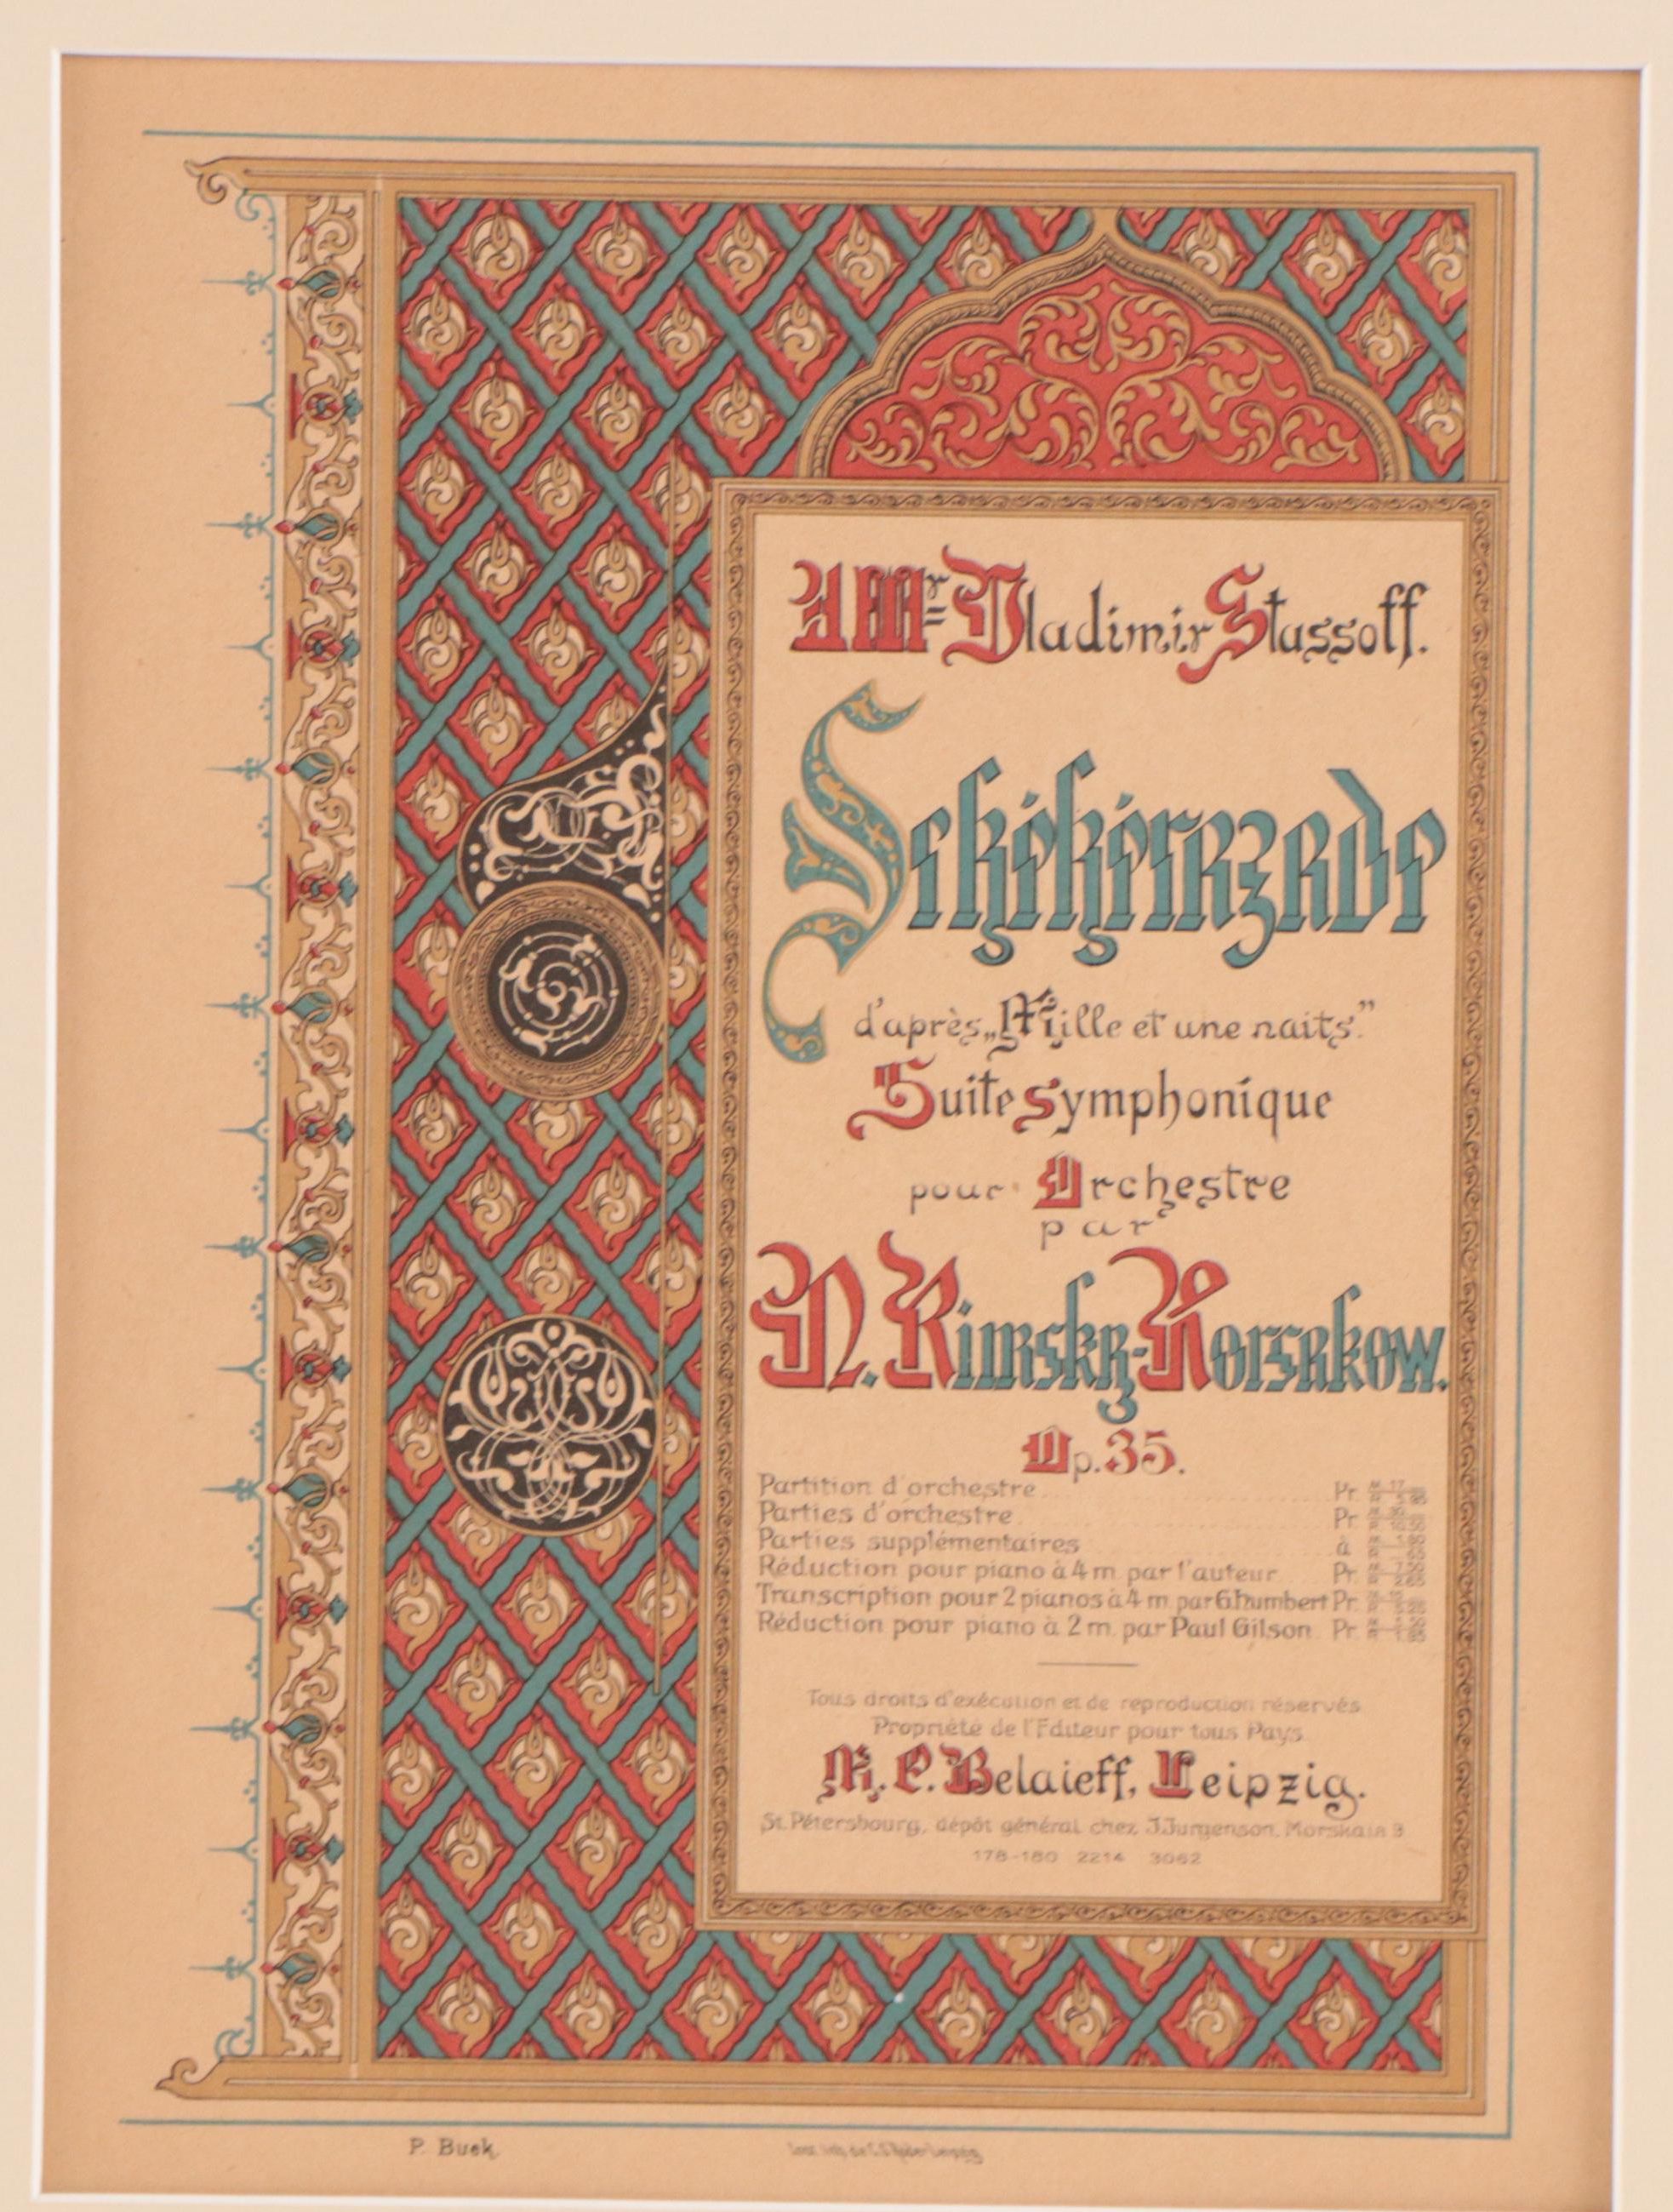 A Mr Vladimir Stassoff.
Schéhérazade
d'après „Mille et une nuits."
Suite symphonique
pour Orchestre
par
N. Rimsky-Korsakow.
Op. 35.
Partition d'orchestre Pr.
Parties d'orchestre Pr.
Parties supplémentaires à
Réduction pour piano à 4 m. par l'auteur Pr.
Transcription pour 2 pianos à 4 m. par G. Humbert Pr.
Réduction pour piano à 2 m. par Paul Gilson. Pr.
Tous droits d'exécution et de reproduction réservés
Propriété de l'Editeur pour tous Pays.
M. P. Belaieff, Leipzig.
St. Pétersbourg, dépôt général chez J. Jurgenson, Morskaia 9
178-180 2214 3062
P. Buek
Inst. lith. de C. G. Röder Leipzig